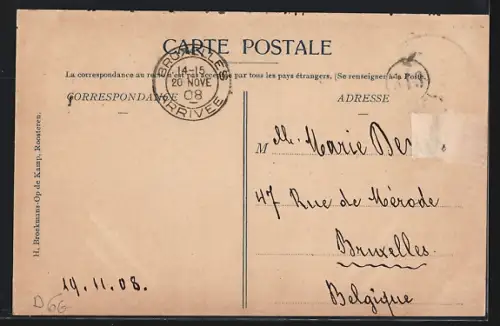 CARTE POSTALE
La correspondance au recto n'est pas acceptée par tous les pays étrangers. (Se renseigner à la Poste.
CORRESPONDANCE
ADRESSE
BRUXELLES
14-15
20 NOVE
08
ARRIVEE
Mlle. Marie
47 Rue de Mérode
Bruxelles.
Belgique
19.11.08.
H. Broekmans-Op de Kamp, Roosteren.
D66